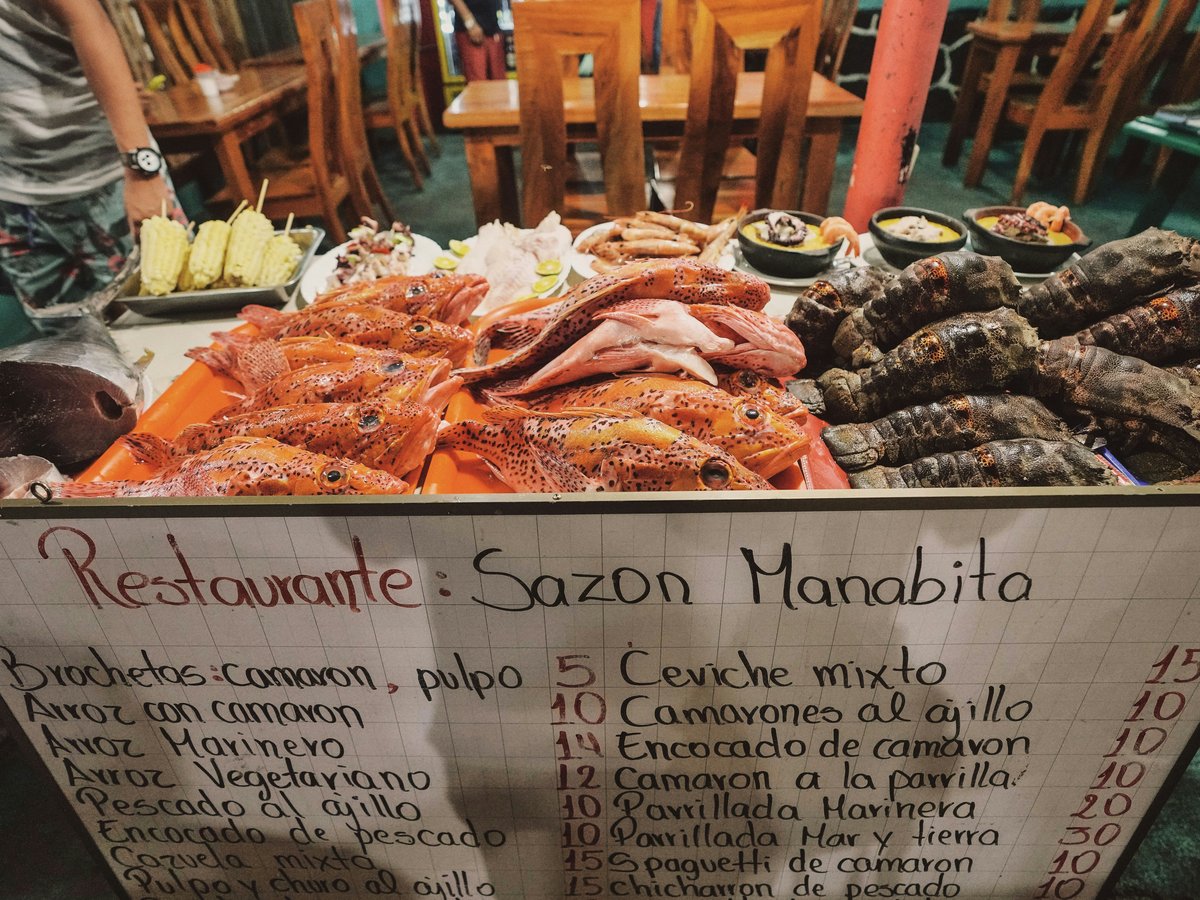 Restaurante: Sazon Manabita
Brochetas: camaron, pulpo 5
Arroz con camaron 10
Arroz Marinero 14
Arroz Vegetariano 12
Pescado al ajillo 10
Encocado de pescado 10
Cazuela mixta 15
Pulpo y churo al ajillo 15
Ceviche mixto 15
Camarones al ajillo 10
Encocado de camaron 10
Camaron a la parrilla 10
Parrillada Marinera 20
Parrillada Mar y tierra 30
Spaguetti de camaron 10
chicharron de pescado 10